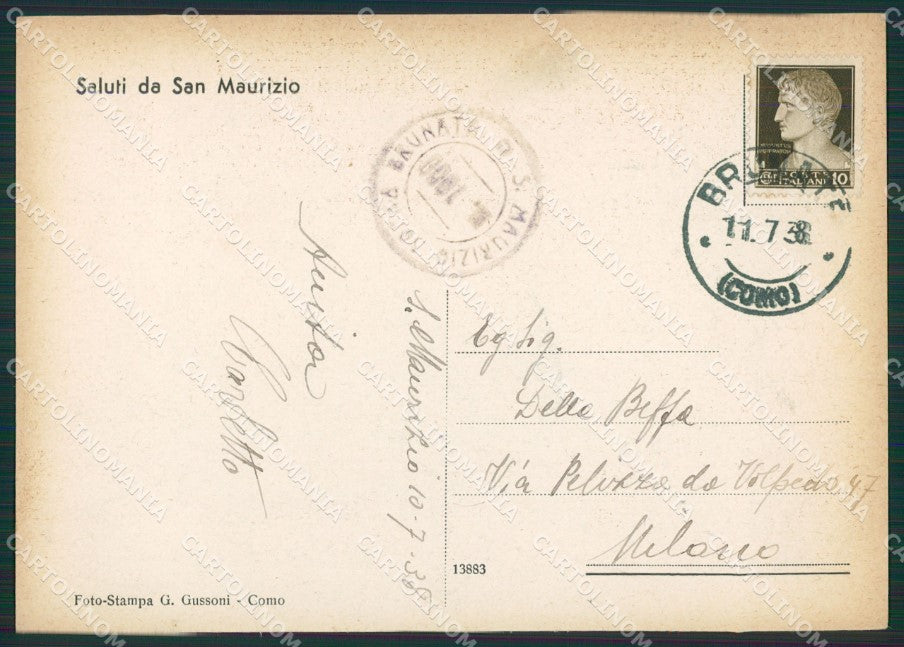 Saluti da San Maurizio
POSTE ITALIANE
10
BRUNATE
11.7.38
(COMO)
BRUNATE
S. MAURIZIO
Anita
S. Maurizio 10-7-38
Eg. Sig.
Della Beffa
Via Pelizza da Volpedo 47
Milano
13883
Foto-Stampa G. Gussoni - Como
CARTOLINOMANIA